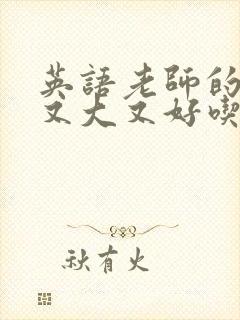 英語老師的
又大又好喫
秋有火